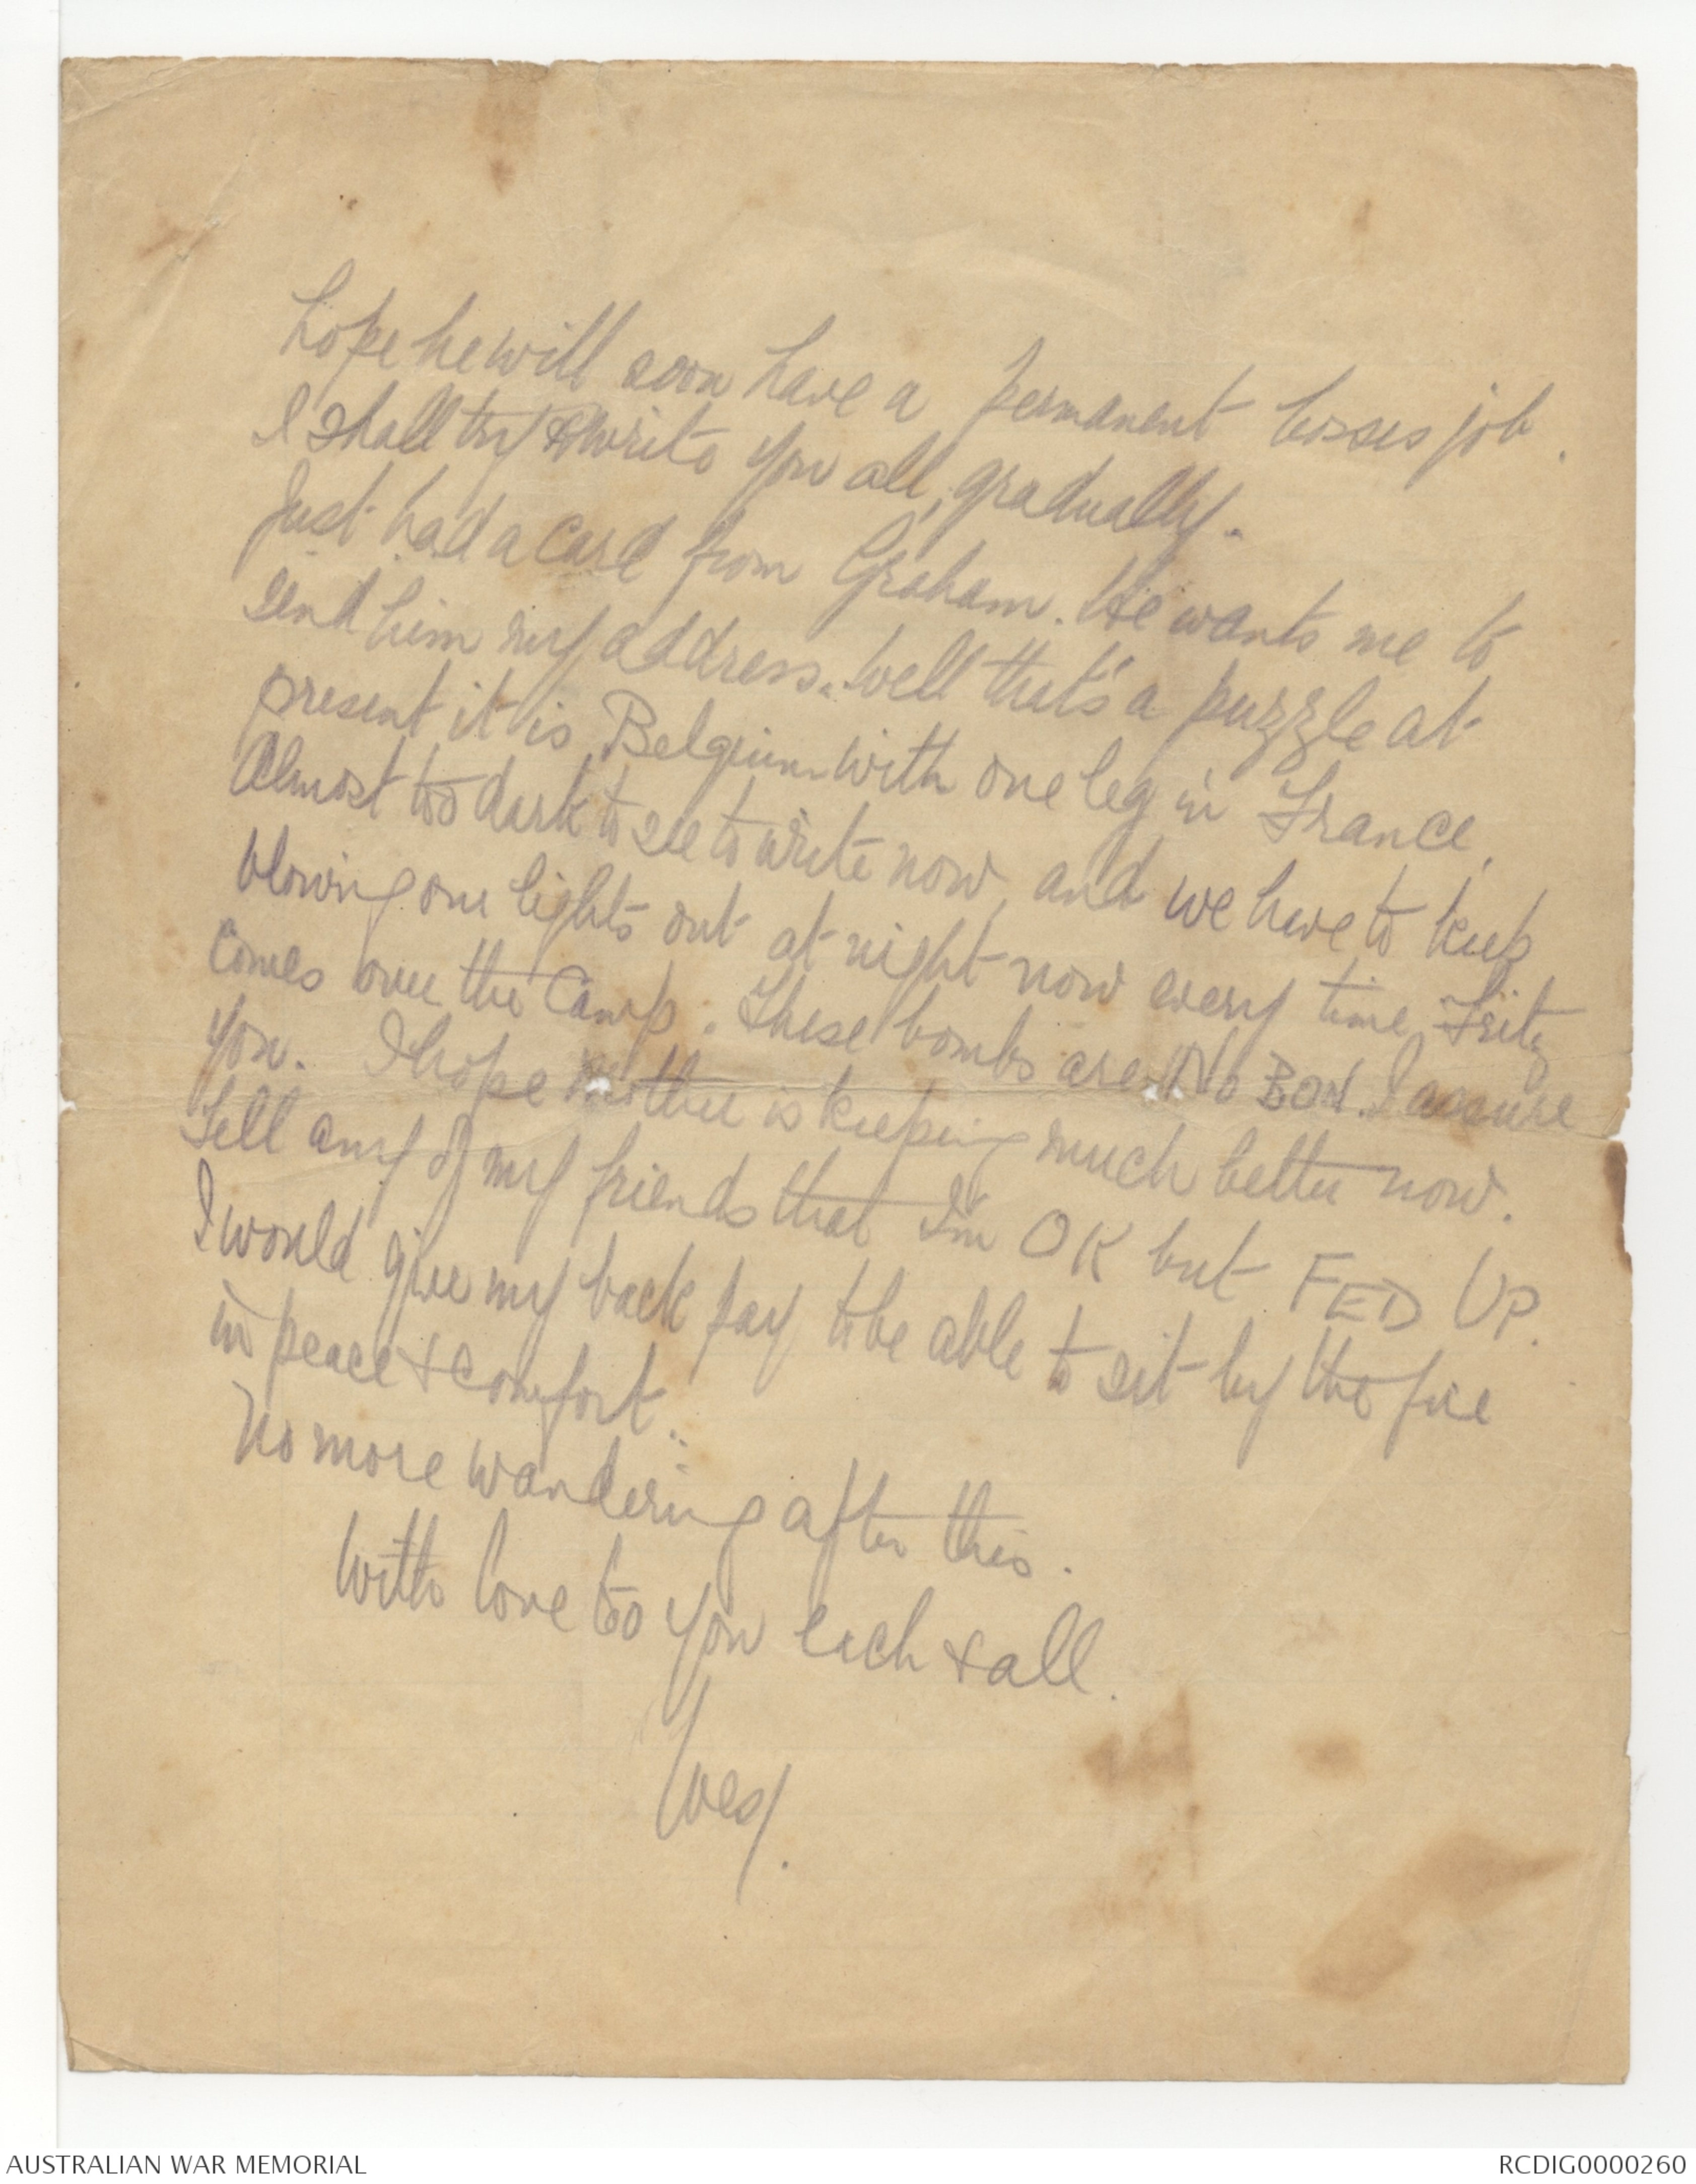 hope he will soon have a permanent bosses job.
I shall try & write you all, gradually.
Just had a card from Graham. He wants me to
send him my address. Well that's a puzzle at
present it is Belgium with one leg in France.
Almost too dark to see to write now, and we have to keep
blowing our lights out at night now every time Fritz
comes over the Camp. These bombs are No BON. I assure
you. I hope mother is keeping much better now.
Tell any of my friends that I'm OK but FED UP.
I would give my back pay to be able to sit by the fire
in peace & comfort.
No more wandering after this.
With love to you each & all.
Wes.
AUSTRALIAN WAR MEMORIAL
RCDIG0000260